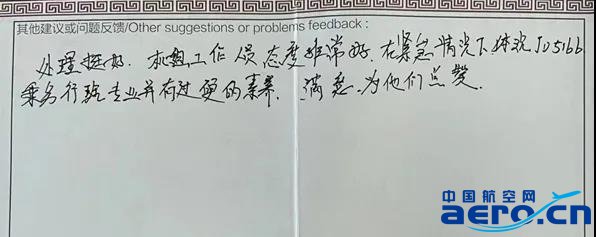 其他建议或问题反馈/Other suggestions or problems feedback :
处理挺好. 机组工作人员态度非常好. 在紧急情况下体现JD5166
乘务行驶专业并有过硬的素养. 满意. 为他们点赞.
中国航空网
aero.cn